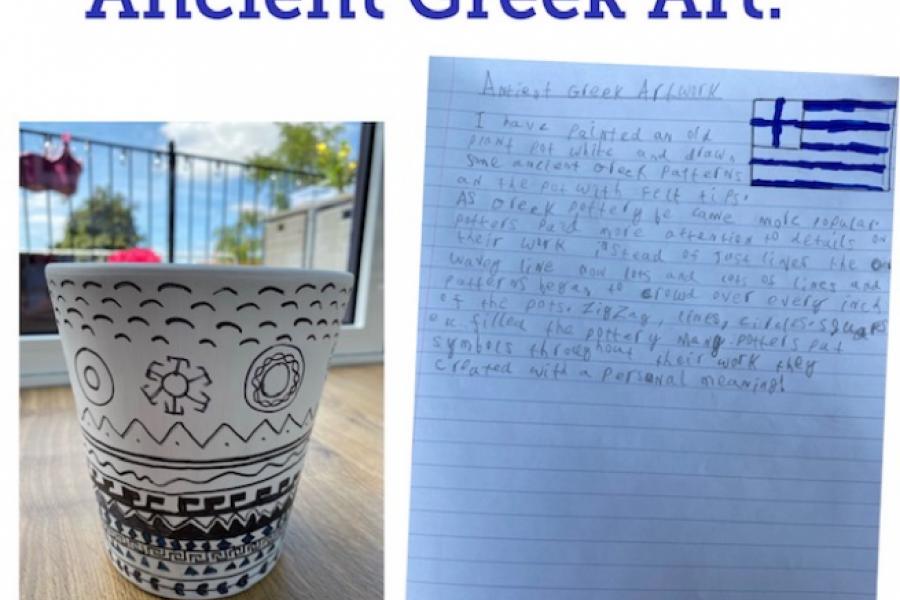 Ancient Greek Art.
Antient Greek Artwork
I have painted an old
plant pot white and drawn
some ancient Greek Patterns
on the pot with felt tips.
As Greek pottery be came more popular
potters paid more attention to details on
their work instead of Just lines the
wavey line now lots and lots of lines and
patterns began to crowd over every inch
of the pots. ZigZag, lines, circles, squares
filled the pottery many potters put
symbols throughout their work they
created with a personal meaning!